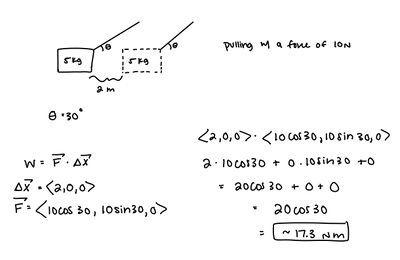 pulling w/ a force of 10N
θ
θ
5 kg
5 kg
2 m
θ = 30°
W = F⃗ · Δx⃗
Δx⃗ = <2,0,0>
F⃗ = <10cos30, 10sin30,0>
<2,0,0> · <10cos30,10sin30,0>
2 · 10cos30 + 0 · 10sin30 +0
= 20cos30 + 0 + 0
= 20cos30
= ~17.3 Nm